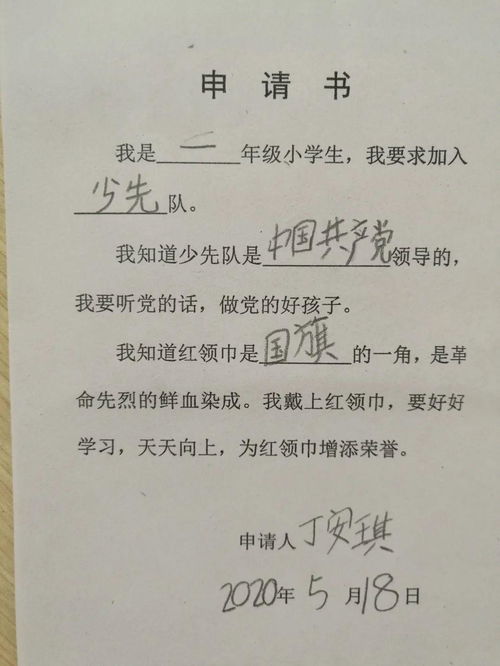 申请书
我是一年级小学生，我要求加入
少先队。
我知道少先队是中国共产党领导的，
我要听党的话，做党的好孩子。
我知道红领巾是国旗的一角，是革
命先烈的鲜血染成。我戴上红领巾，要好好
学习，天天向上，为红领巾增添荣誉。
申请人丁安琪
2020年5月18日